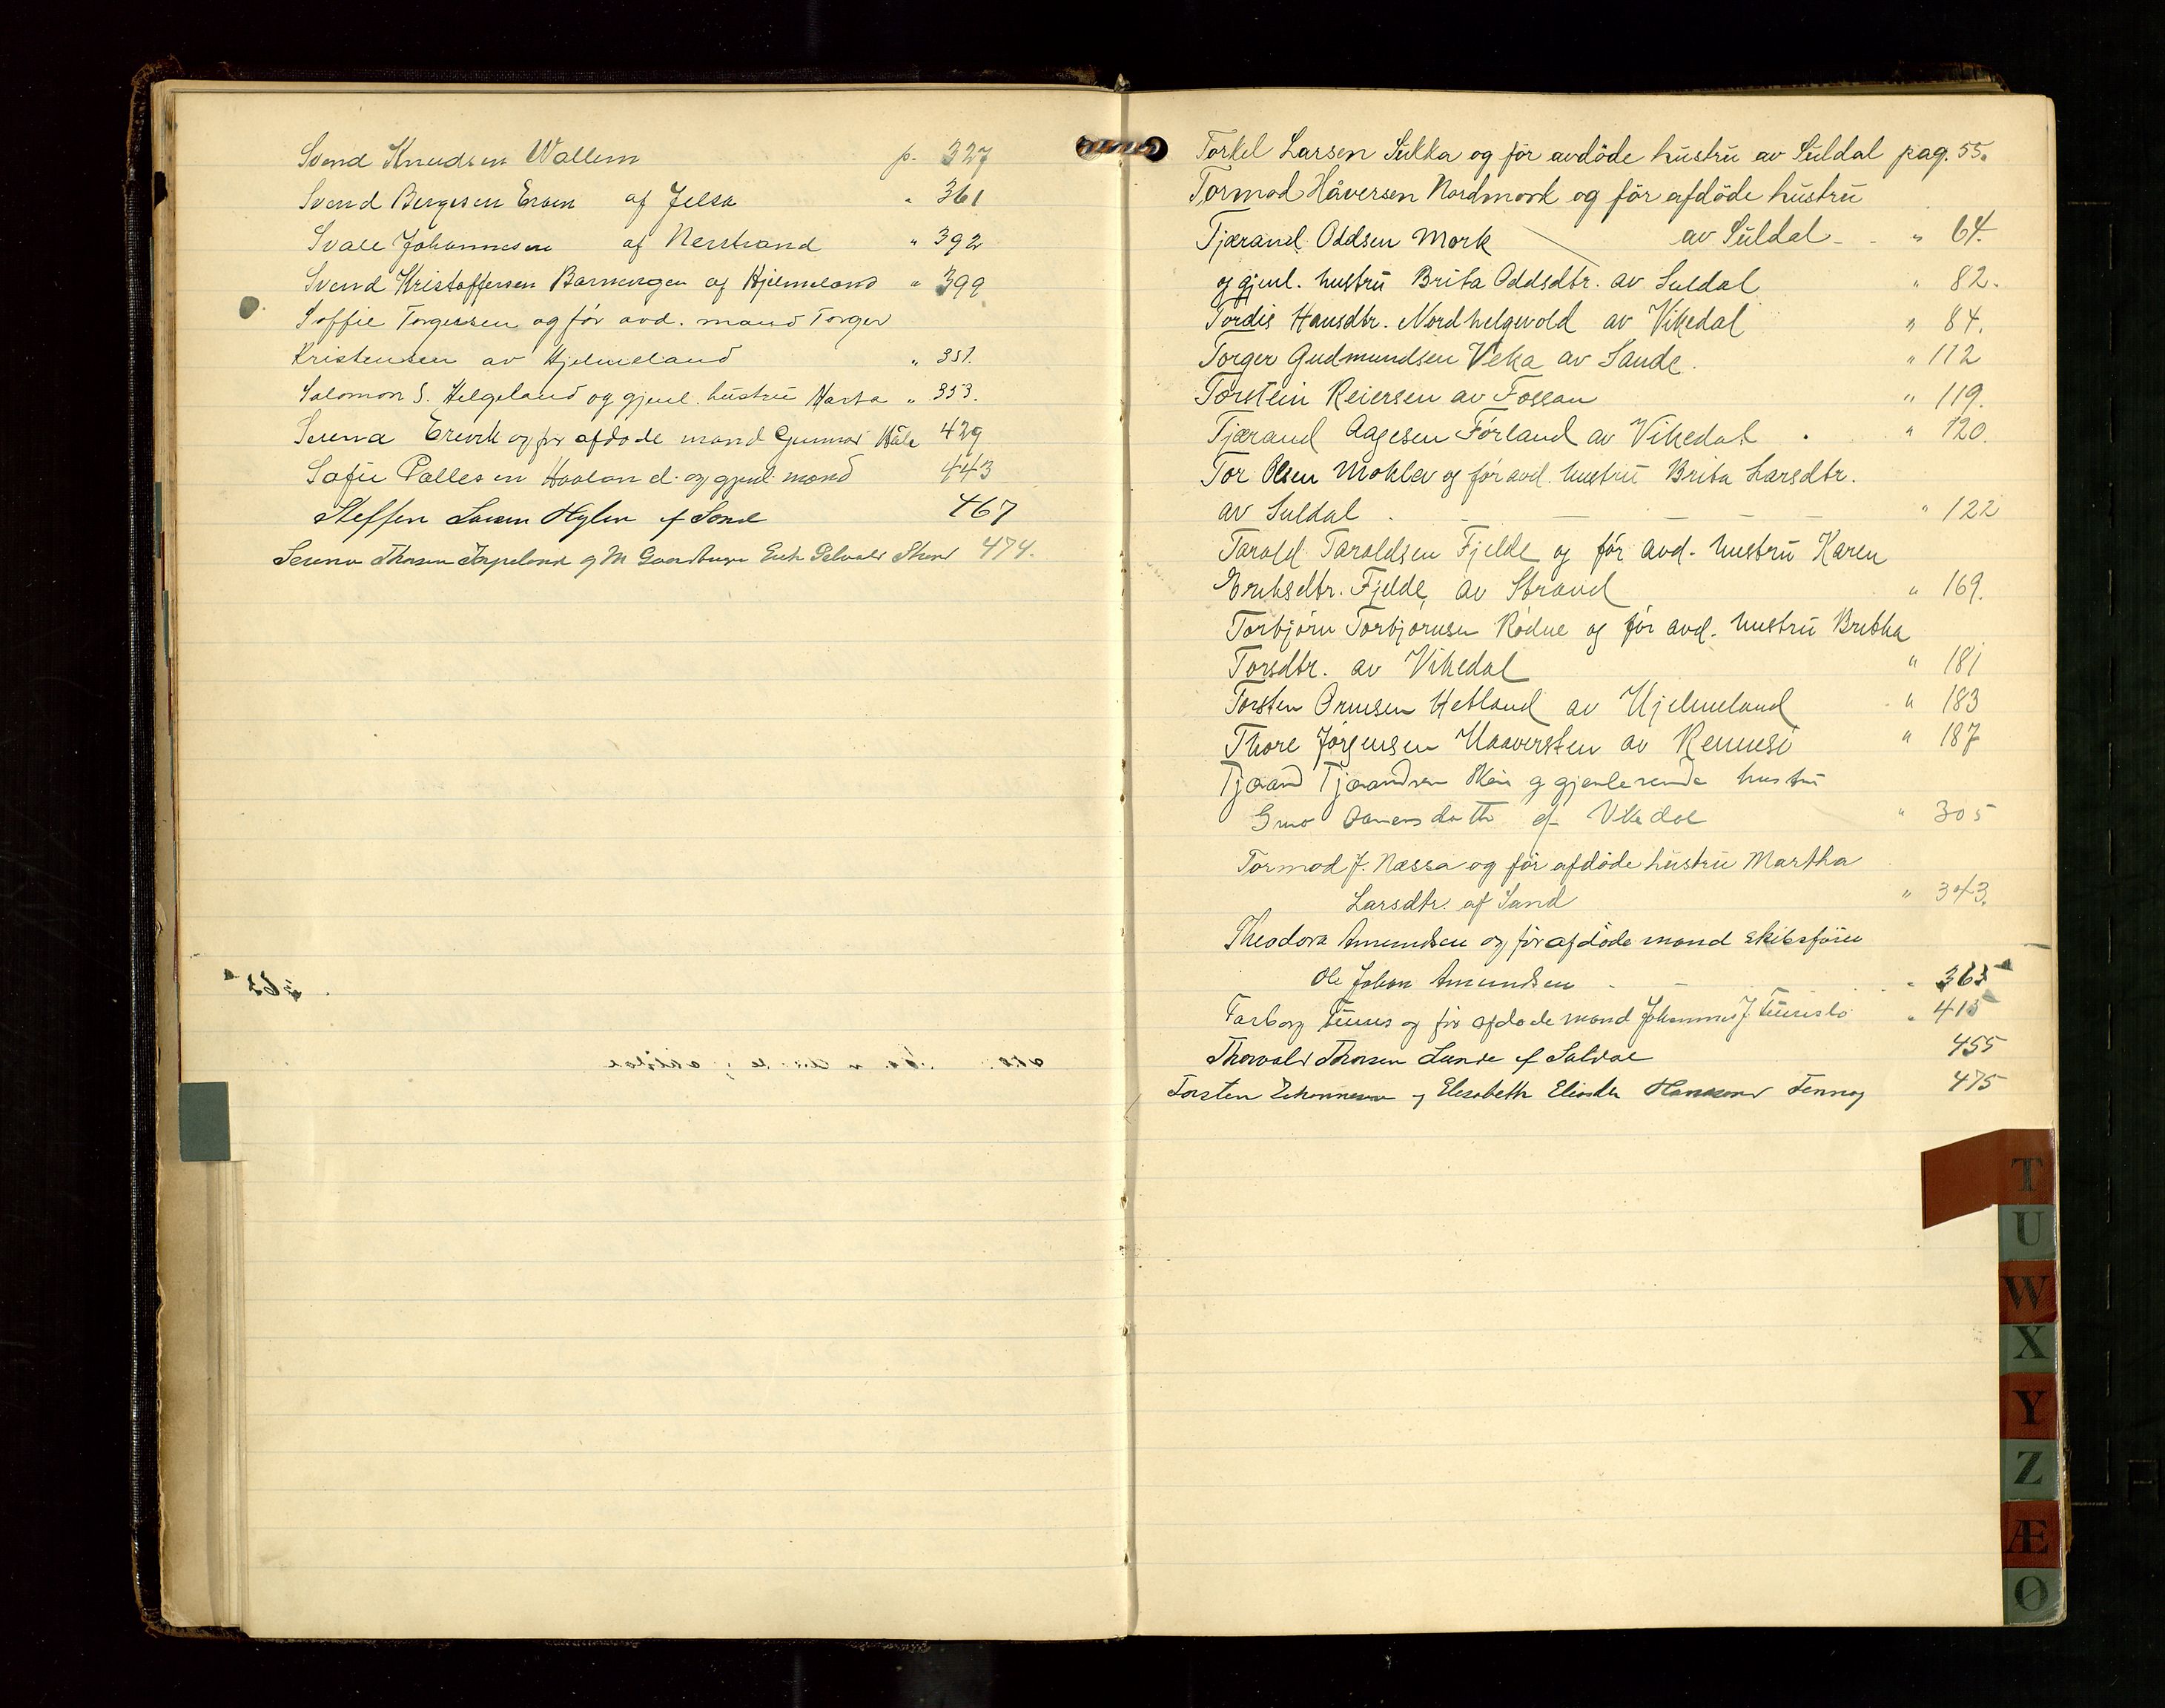 Svend Knudsen Wallem p. 327
Svend Bergesen Eroen af Jelsa " 361
Svale Johannesen af Nerstrand " 392
Svend Kristoffersen af Hjelmeland " 399
Soffie Torgersen og för avd. mand Torger
Kristensen av Hjelmeland " 351.
Salomon S. Helgeland og gjenl. hustru Marta " 353.
Serena Erevik og för afdøde mand Gunnar 429
Sofie Pallesen Haaland og gjenl. mand 443
Steffen Larsen Hylen af Sand 467
Serena Thorsen Jørpeland og M 474.
Torkel Larsen Sukka og för avdöde hustru av Suldal pag. 55.
Tormod Håversen Nordmork og för afdöde hustru
Tjærand Oddsen Mork av Suldal - " 64.
og gjenl. hustru Brita Oddsdtr. av Suldal " 82.
Tordis Hansdtr. Nordhelgevold av Vikedal " 84.
Torger Gudmundsen Veka av Sande. " 112
Torstein Reiersen av Fossan " 119.
Tjærand Aagesen Förland av Vikedal . " 120.
Tor Olsen Moklev og för avd. hustru Brita Larsdtr.
av Suldal . - - - - - " 122
Tarald Taraldsen Fjelde og för avd. hustru Karen
Eriksdtr. Fjelde, av Strand " 169.
Torbjörn Torbjörnsen Rödne og för avd. hustru Britha
Torsdtr. av Vikedal " 181
Torsten Ormsen Hetland av Hjelmeland " 183
Thore Jörgensen Haaversten av Rennesö " 187
Tjærand Tjærandsen og gjenlevende hustru
af Vikedal " 305
Tormod J. Næssa og för afdöde hustru Martha
Larsdtr. af Sand " 343.
Theodora Amundsen og för afdöde mand skibsförer
Ole Johan Amundsen - - " 365
Tarborg og för afdøde mand Johannes J. " 415
Thorvald Thorsen Lunde af Suldal 455
Torsten Johannesen og Elisabeth Eliasdtr 475
T
U
W
X
Y
Z
Æ
Ø